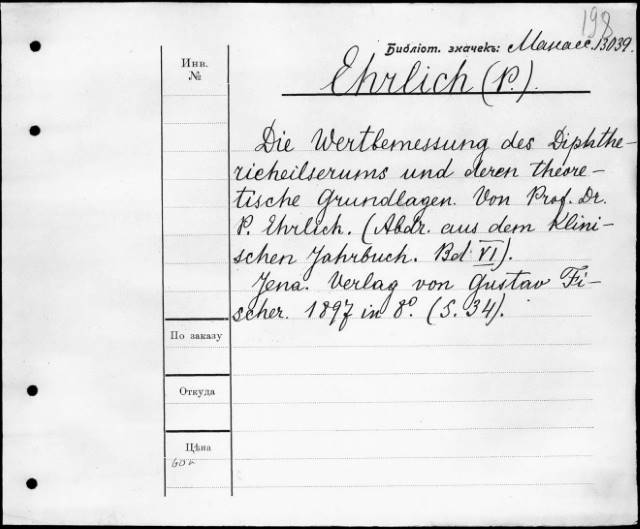 198
Библіот. значекъ: Манасс. 13039.
Инв.
№
Ehrlich (P.).
Die Wertbemessung des Diphthe-
richeilserums und deren theore-
tische Grundlagen. Von Prof. Dr.
P. Ehrlich. (Abdr. aus dem Klini-
schen Jahrbuch. Bd VI).
Jena. Verlag von Gustav Fi-
scher. 1897 in 8º. (S. 34).
По заказу
Откуда
Цѣна
60 к